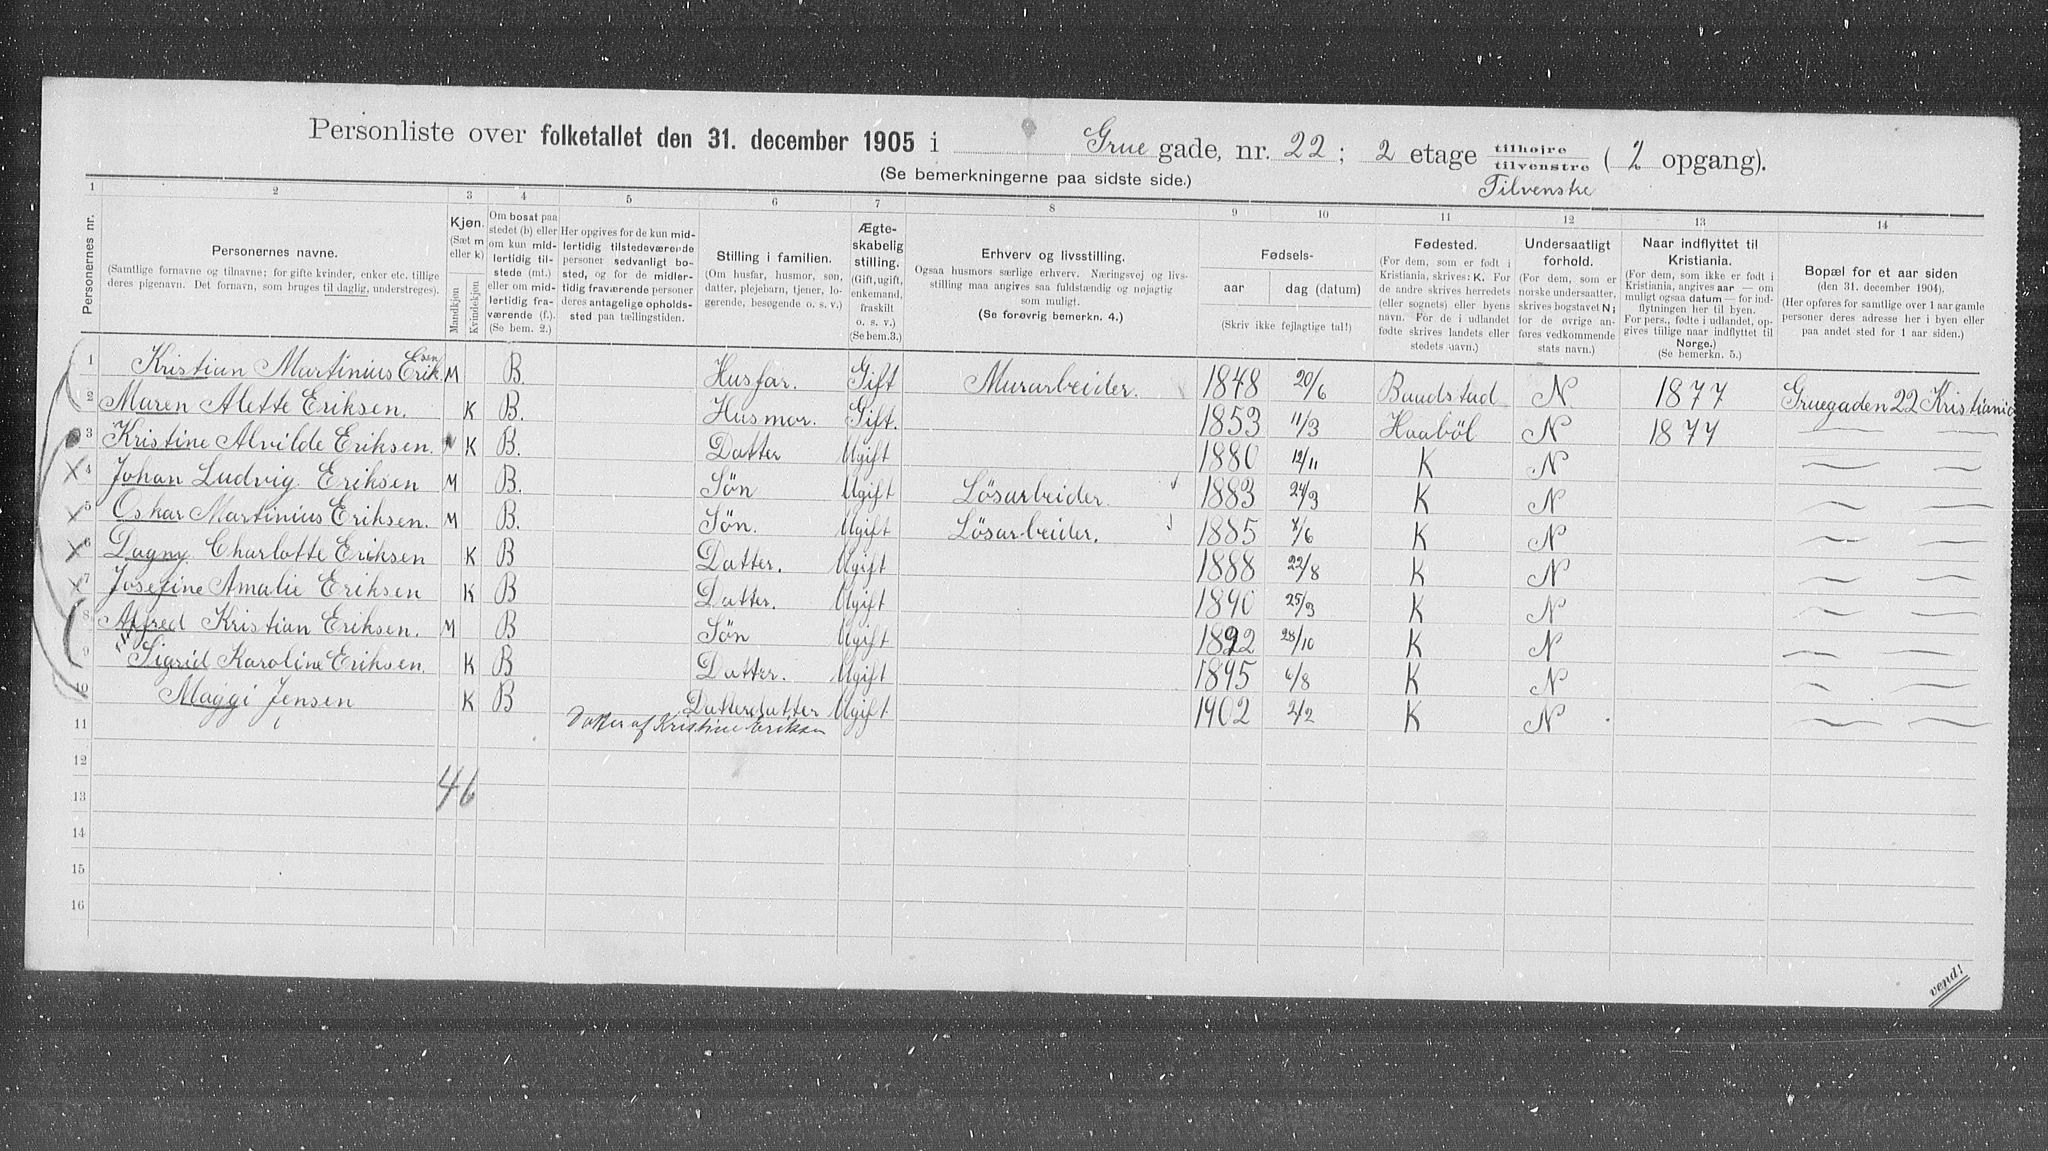 Personliste over folketallet den 31. december 1905 i Grue gade, nr. 22; 2 etage tilhøjre tilvenstre ( 2 opgang).
(Se bemerkningerne paa sidste side.) Tilvenstre
1 2 3 4 5 6 7 8 9 10 11 12 13 14
Personernes nr.
Personernes navne.
(Samtlige fornavne og tilnavne; for gifte kvinder, enker etc. tillige
deres pigenavn. Det fornavn, som bruges til daglig, understreges).
Kjøn.
(Sæt m
eller k)
Mandkjøn
Kvindekjøn
Om bosat paa
stedet (b) eller
om kun mid-
lertidig til-
stede (mt.)
eller om mid-
lertidig fra-
værende (f.).
(Se bem. 2.)
Her opgives for de kun mid-
lertidig tilstedeværende
personer sedvanligt bo-
sted, og for de midler-
tidig fraværende personer
deres antagelige opholds-
sted paa tællingstiden.
Stilling i familien.
(Om husfar, husmor, søn,
datter, plejebarn, tjener, lo-
gerende, besøgende o. s. v.)
Ægte-
skabelig
stilling.
(Gift, ugift,
enkemand,
fraskilt
o. s. v.)
(Se bem. 3.)
Erhverv og livsstilling.
Ogsaa husmors særlige erhverv. Næringsvej og livs-
stilling maa angives saa fuldstændig og nøjagtig
som muligt.
(Se forøvrig bemerkn. 4.)
Fødsels-
aar dag (datum)
(Skriv ikke fejlagtige tal!)
Fødested.
(For dem, som er født i
Kristiania, skrives: K. For
de andre skrives herredets
(eller sognets) eller byens
navn. For de i udlandet
fødte skrives landets eller
stedets navn.)
Undersaatligt
forhold.
(For dem, som er
norske undersaatter,
skrives bogstavet N;
for de øvrige an-
føres vedkommende
stats navn.)
Naar indflyttet til
Kristiania.
(For dem, som ikke er født i
Kristiania, angives aar — om
muligt ogsaa datum — for ind-
flytningen her til byen.
For pers., fødte i udlandet, op-
gives tillige naar indflyttet til
Norge.)
(Se bemerkn. 5.)
Bopæl for et aar siden
(den 31. december 1904).
(Her opføres for samtlige over 1 aar gamle
personer deres adresse her i byen eller
paa andet sted for 1 aar siden.)
1 Kristian Martinius Eriksen M B. Husfar. Gift Murarbeider. 1848 20/6 N 1877 Gruegaden 22 Kristiania
2 Maren Alette Eriksen. K B. Husmor. Gift. 1853 11/3 Haaböl N 1877
3 Kristine Alvilde Eriksen. K B. Datter Ugift 1880 12/11 K N
4 Johan Ludvig Eriksen M B. Søn Ugift Lösarbeider. 1883 24/3 K N
5 Oskar Martinius Eriksen. M B. Søn. Ugift Lösarbeider. 1885 7/6 K N
6 Dagny Charlotte Eriksen K B Datter. Ugift 1888 22/8 K N
7 Josefine Amalie Eriksen K B Datter. Ugift 1890 25/3 K N
8 Alfred Kristian Eriksen. M B Søn Ugift 1892 28/10 K N
9 Sigrid Karoline Eriksen. K B Datter. Ugift 1895 6/8 K N
10 Maggi Jensen K B Datterdatter Ugift 1902 2/2 K N
11 Datter af Kristine Eriksen
12
13 4 6
14
15
16
vend!